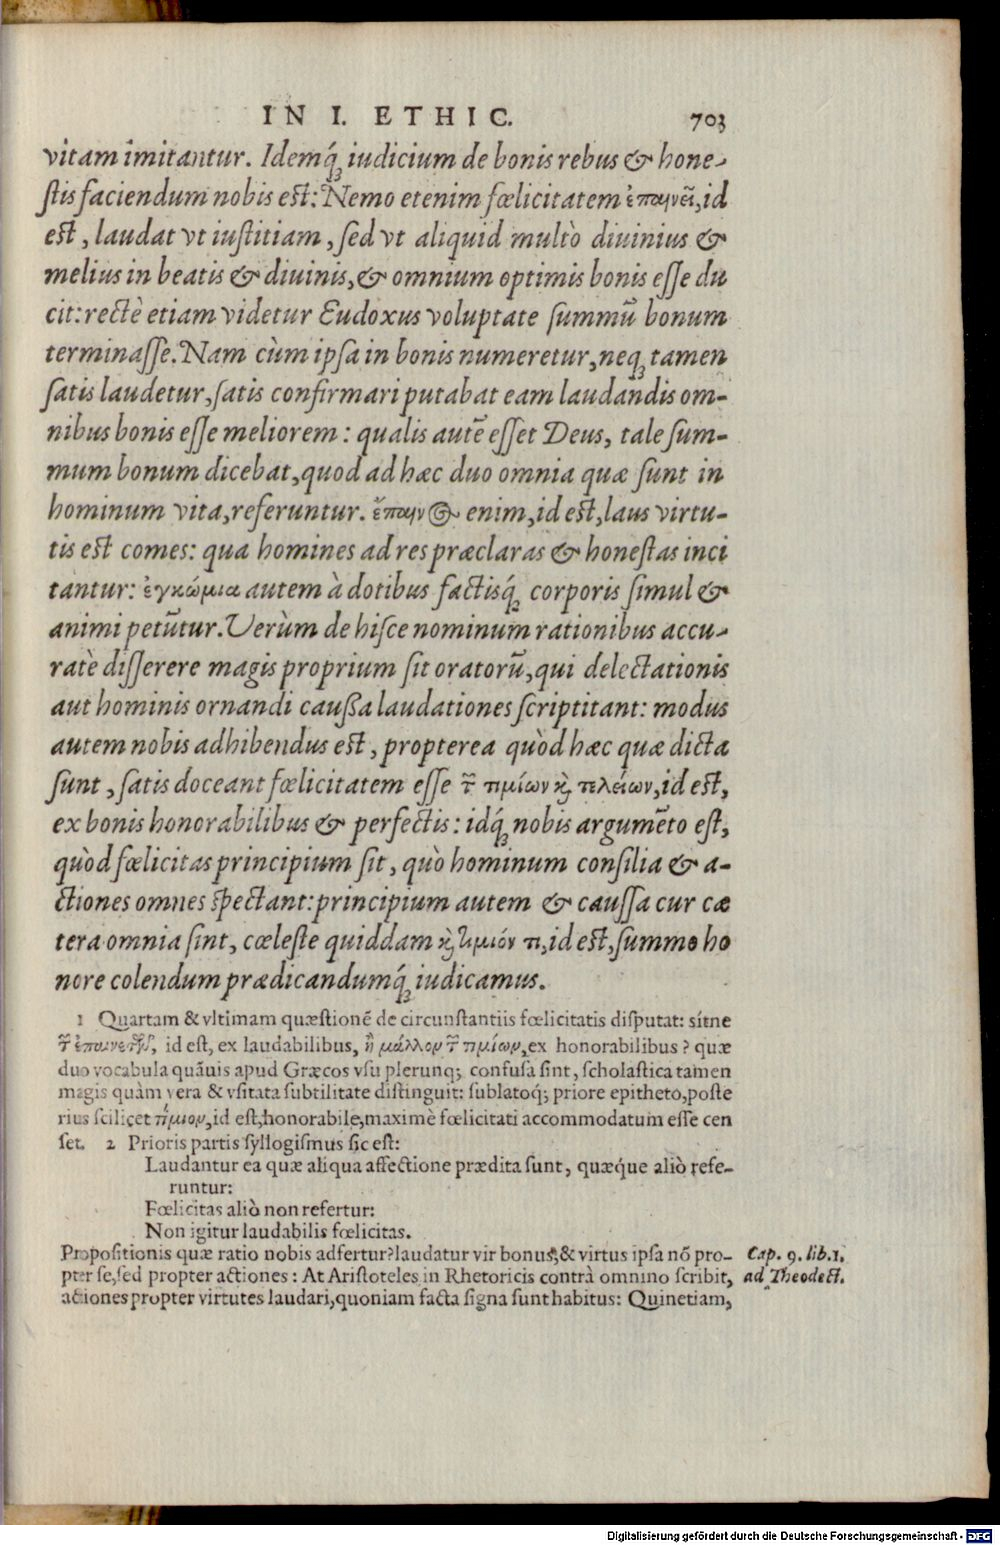 IN I. ETHIC. 703
vitam imitantur. Idemq́; iudicium de bonis rebus & hone-
stis faciendum nobis est: Nemo etenim fœlicitatem ἐπαινεῖ, id
est, laudat vt iustitiam, sed vt aliquid multò diuinius &
melius in beatis & diuinis, & omnium optimis bonis esse du
cit: rectè etiam videtur Eudoxus voluptate summũ bonum
terminasse. Nam cùm ipsa in bonis numeretur, neq; tamen
satis laudetur, satis confirmari putabat eam laudandis om-
nibus bonis esse meliorem: qualis autẽ esset Deus, tale sum-
mum bonum dicebat, quod ad hæc duo omnia quæ sunt in
hominum vita, referuntur. ἔπαινος enim, id est, laus virtu-
tis est comes: qua homines ad res præclaras & honestas inci
tantur: ἐγκώμια autem à dotibus factisq́; corporis simul &
animi petũtur. Verùm de hisce nominum rationibus accu-
ratè disserere magis proprium sit oratorũ, qui delectationis
aut hominis ornandi caußa laudationes scriptitant: modus
autem nobis adhibendus est, propterea quòd hæc quæ dicta
sunt, satis doceant fœlicitatem esse τῶν τιμίων καὶ τελείων, id est,
ex bonis honorabilibus & perfectis: idq́; nobis argumẽto est,
quòd fœlicitas principium sit, quò hominum consilia & a-
ctiones omnes spectant: principium autem & caussa cur cæ
tera omnia sint, cœleste quiddam καὶ τίμιόν τι, id est, summo ho
nore colendum prædicandumq́; iudicamus.
1 Quartam & vltimam quæstionẽ de circunstantiis fœlicitatis disputat: sitne
τῶν ἐπαινετῶν, id est, ex laudabilibus, ἢ μᾶλλον τῶν τιμίων, ex honorabilibus? quæ
duo vocabula quãuis apud Græcos vsu plerunq; confusa sint, scholastica tamen
magis quàm vera & vsitata subtilitate distinguit: sublatoq́; priore epitheto, poste
rius scilicet τίμιον, id est, honorabile, maximè fœlicitati accommodatum esse cen
set. 2 Prioris partis syllogismus sic est:
Laudantur ea quæ aliqua affectione prædita sunt, quæque aliò refe-
runtur:
Fœlicitas aliò non refertur:
Non igitur laudabilis fœlicitas.
Propositionis quæ ratio nobis adfertur? laudatur vir bonus, & virtus ipsa nõ pro- Cap. 9. lib. 1.
pter se, sed propter actiones: At Aristoteles in Rhetoricis contrà omnino scribit, ad Theodect.
actiones propter virtutes laudari, quoniam facta signa sunt habitus: Quinetiam,
Digitalisierung gefördert durch die Deutsche Forschungsgemeinschaft - DFG